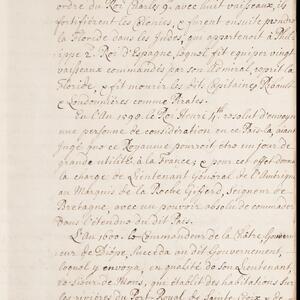 ordre du Roi Charles 9. avec huit vaisseaux, ils
fortifiérent les Colonies, & furent ensuite prendre
la Floride dans les Indes, qui appartenoit à Phil-
lippe 2. Roi d'Espagne, lequel fit équiper vingt
vaisseaux commandés par son Admiral, reprit la
Floride, & fit mourir les dits Capitaines Ribault
& Laudonnieres comme Pirates.
En l'An 1598. le Roi Henri 4th. resolut d'envoyer
une personne de considération en ce Païs-là, aiant
jugé que ce Royaume pourroit être un jour de
grande utilité à la France; & pour cet effet donna
la charge de Lieutenant Général de l'Amérique
au Marquis de la Roche, Seigneur de
Bretagne, avec un pouvoir absolu de commander
dans l'étendue du dit Païs.
L'An 1600. le Commandeur de la Châtre, Gouver-
neur de Diépe, succeda au dit Gouvernement,
lequel y envoya, en qualité de son Lieutenant,
le Sieur de Mons, qui établit des habitations sur
les rivières du Port-Royal, de Sainte Croix, & de